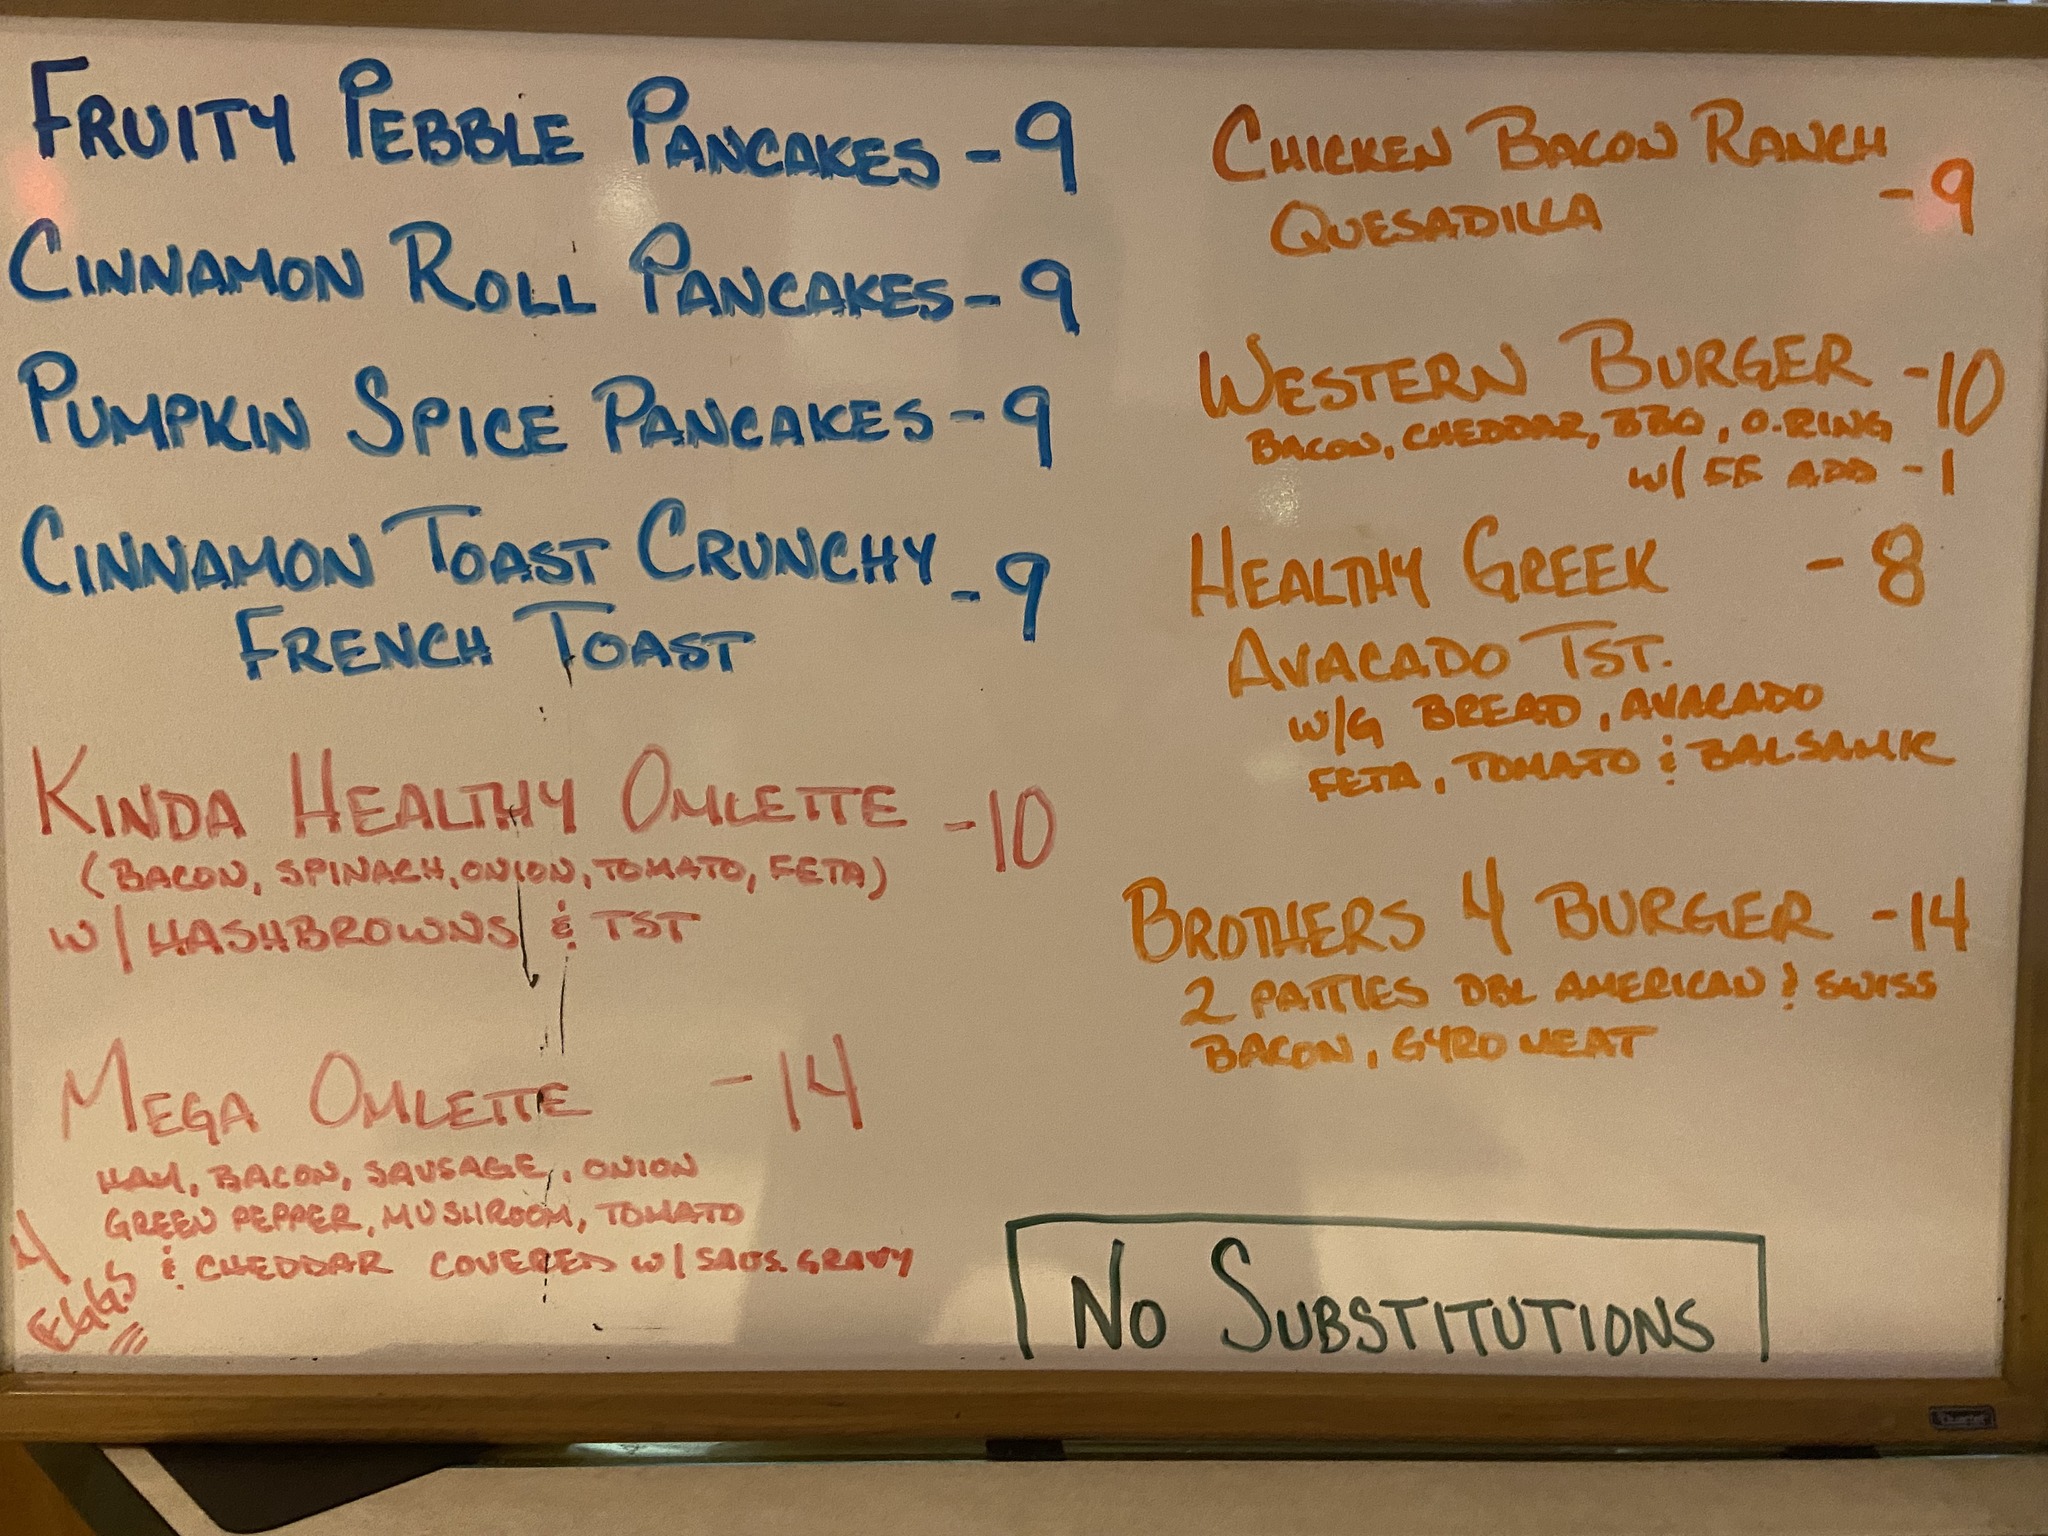 FRUITY PEBBLE PANCAKES - 9
CINNAMON ROLL PANCAKES - 9
PUMPKIN SPICE PANCAKES - 9
CINNAMON TOAST CRUNCHY - 9
FRENCH TOAST
KINDA HEALTHY OMLETTE - 10
(BACON, SPINACH, ONION, TOMATO, FETA)
W/ HASHBROWNS & TST
MEGA OMLETTE - 14
HAM, BACON, SAUSAGE, ONION
GREEN PEPPER, MUSHROOM, TOMATO
& CHEDDAR COVERED W/ SAUS. GRAVY
4
EGGS
CHICKEN BACON RANCH
QUESADILLA - 9
WESTERN BURGER - 10
BACON, CHEDDAR, BBQ, O.RING
W/ FF ADD - 1
HEALTHY GREEK - 8
AVACADO TST.
W/G BREAD, AVACADO
FETA, TOMATO & BALSAMIC
BROTHERS 4 BURGER - 14
2 PATTIES DBL AMERICAN & SWISS
BACON, GYRO MEAT
NO SUBSTITUTIONS
Quartet